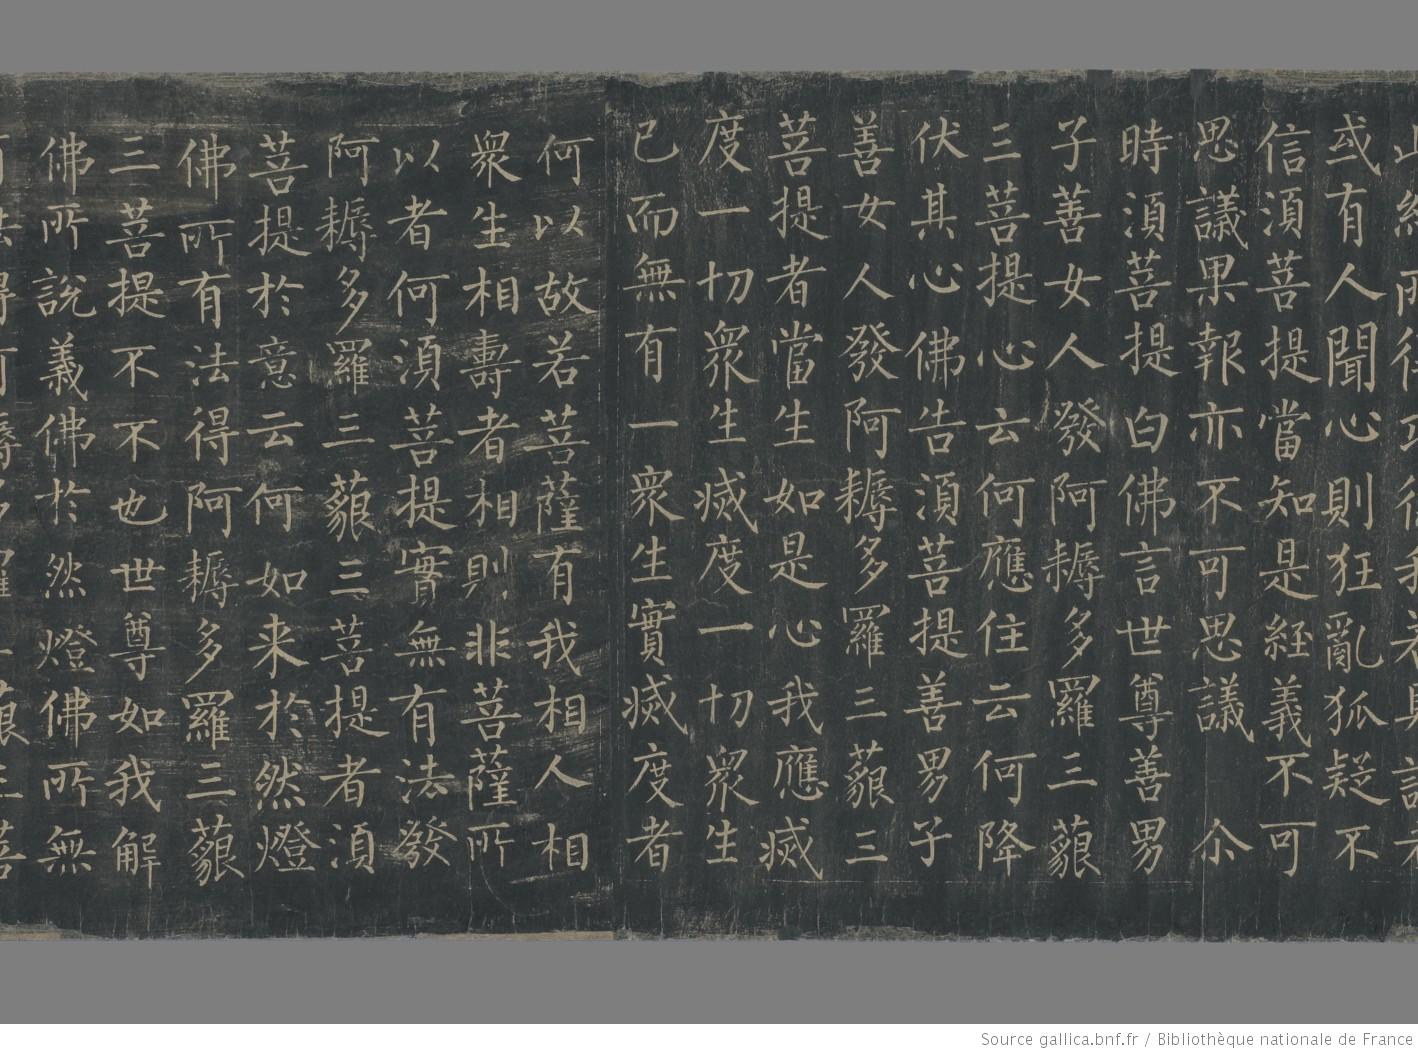 或有人聞心則狂亂狐疑不
信須菩提當知是経義不可
思議果報亦不可思議 尒
時須菩提白佛言世尊善男
子善女人發阿耨多羅三藐
三菩提心云何應住云何降
伏其心佛告須菩提善男子
善女人發阿耨多羅三藐三
菩提者當生如是心我應滅
度一切衆生滅度一切衆生
已而無有一衆生實滅度者
何以故若菩薩有我相人相
衆生相壽者相則非菩薩所
以者何須菩提實無有法發
阿耨多羅三藐三菩提者須
菩提於意云何如来於然燈
佛所有法得阿耨多羅三藐
三菩提不不也世尊如我解
佛所說義佛於然燈佛所無
Source gallica.bnf.fr / Bibliothèque nationale de France